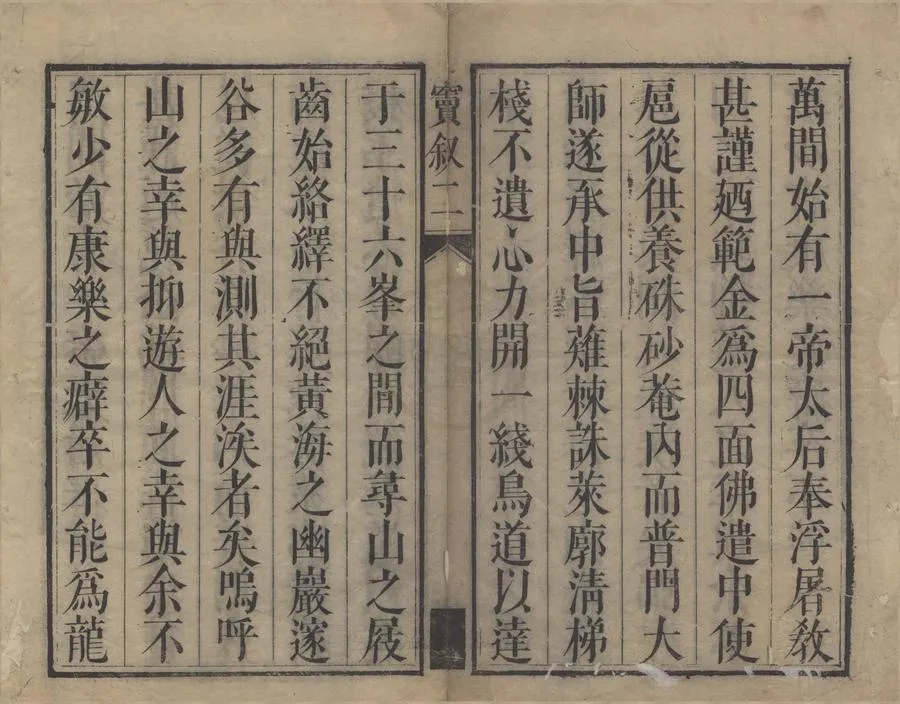 萬間始有一帝太后奉浮屠教
甚謹廼範金爲四面佛遣中使
扈從供養硃砂菴內而普門大
師遂承中旨薙棘誅萊廓淸梯
棧不遺心力開一綫鳥道以達
竇叙 二
于三十六峯之間而尋山之屐
齒始絡繹不絕黃海之幽巖邃
谷多有與測其涯涘者矣嗚呼
山之幸與抑遊人之幸與余不
敏少有康樂之癖卒不能爲龍